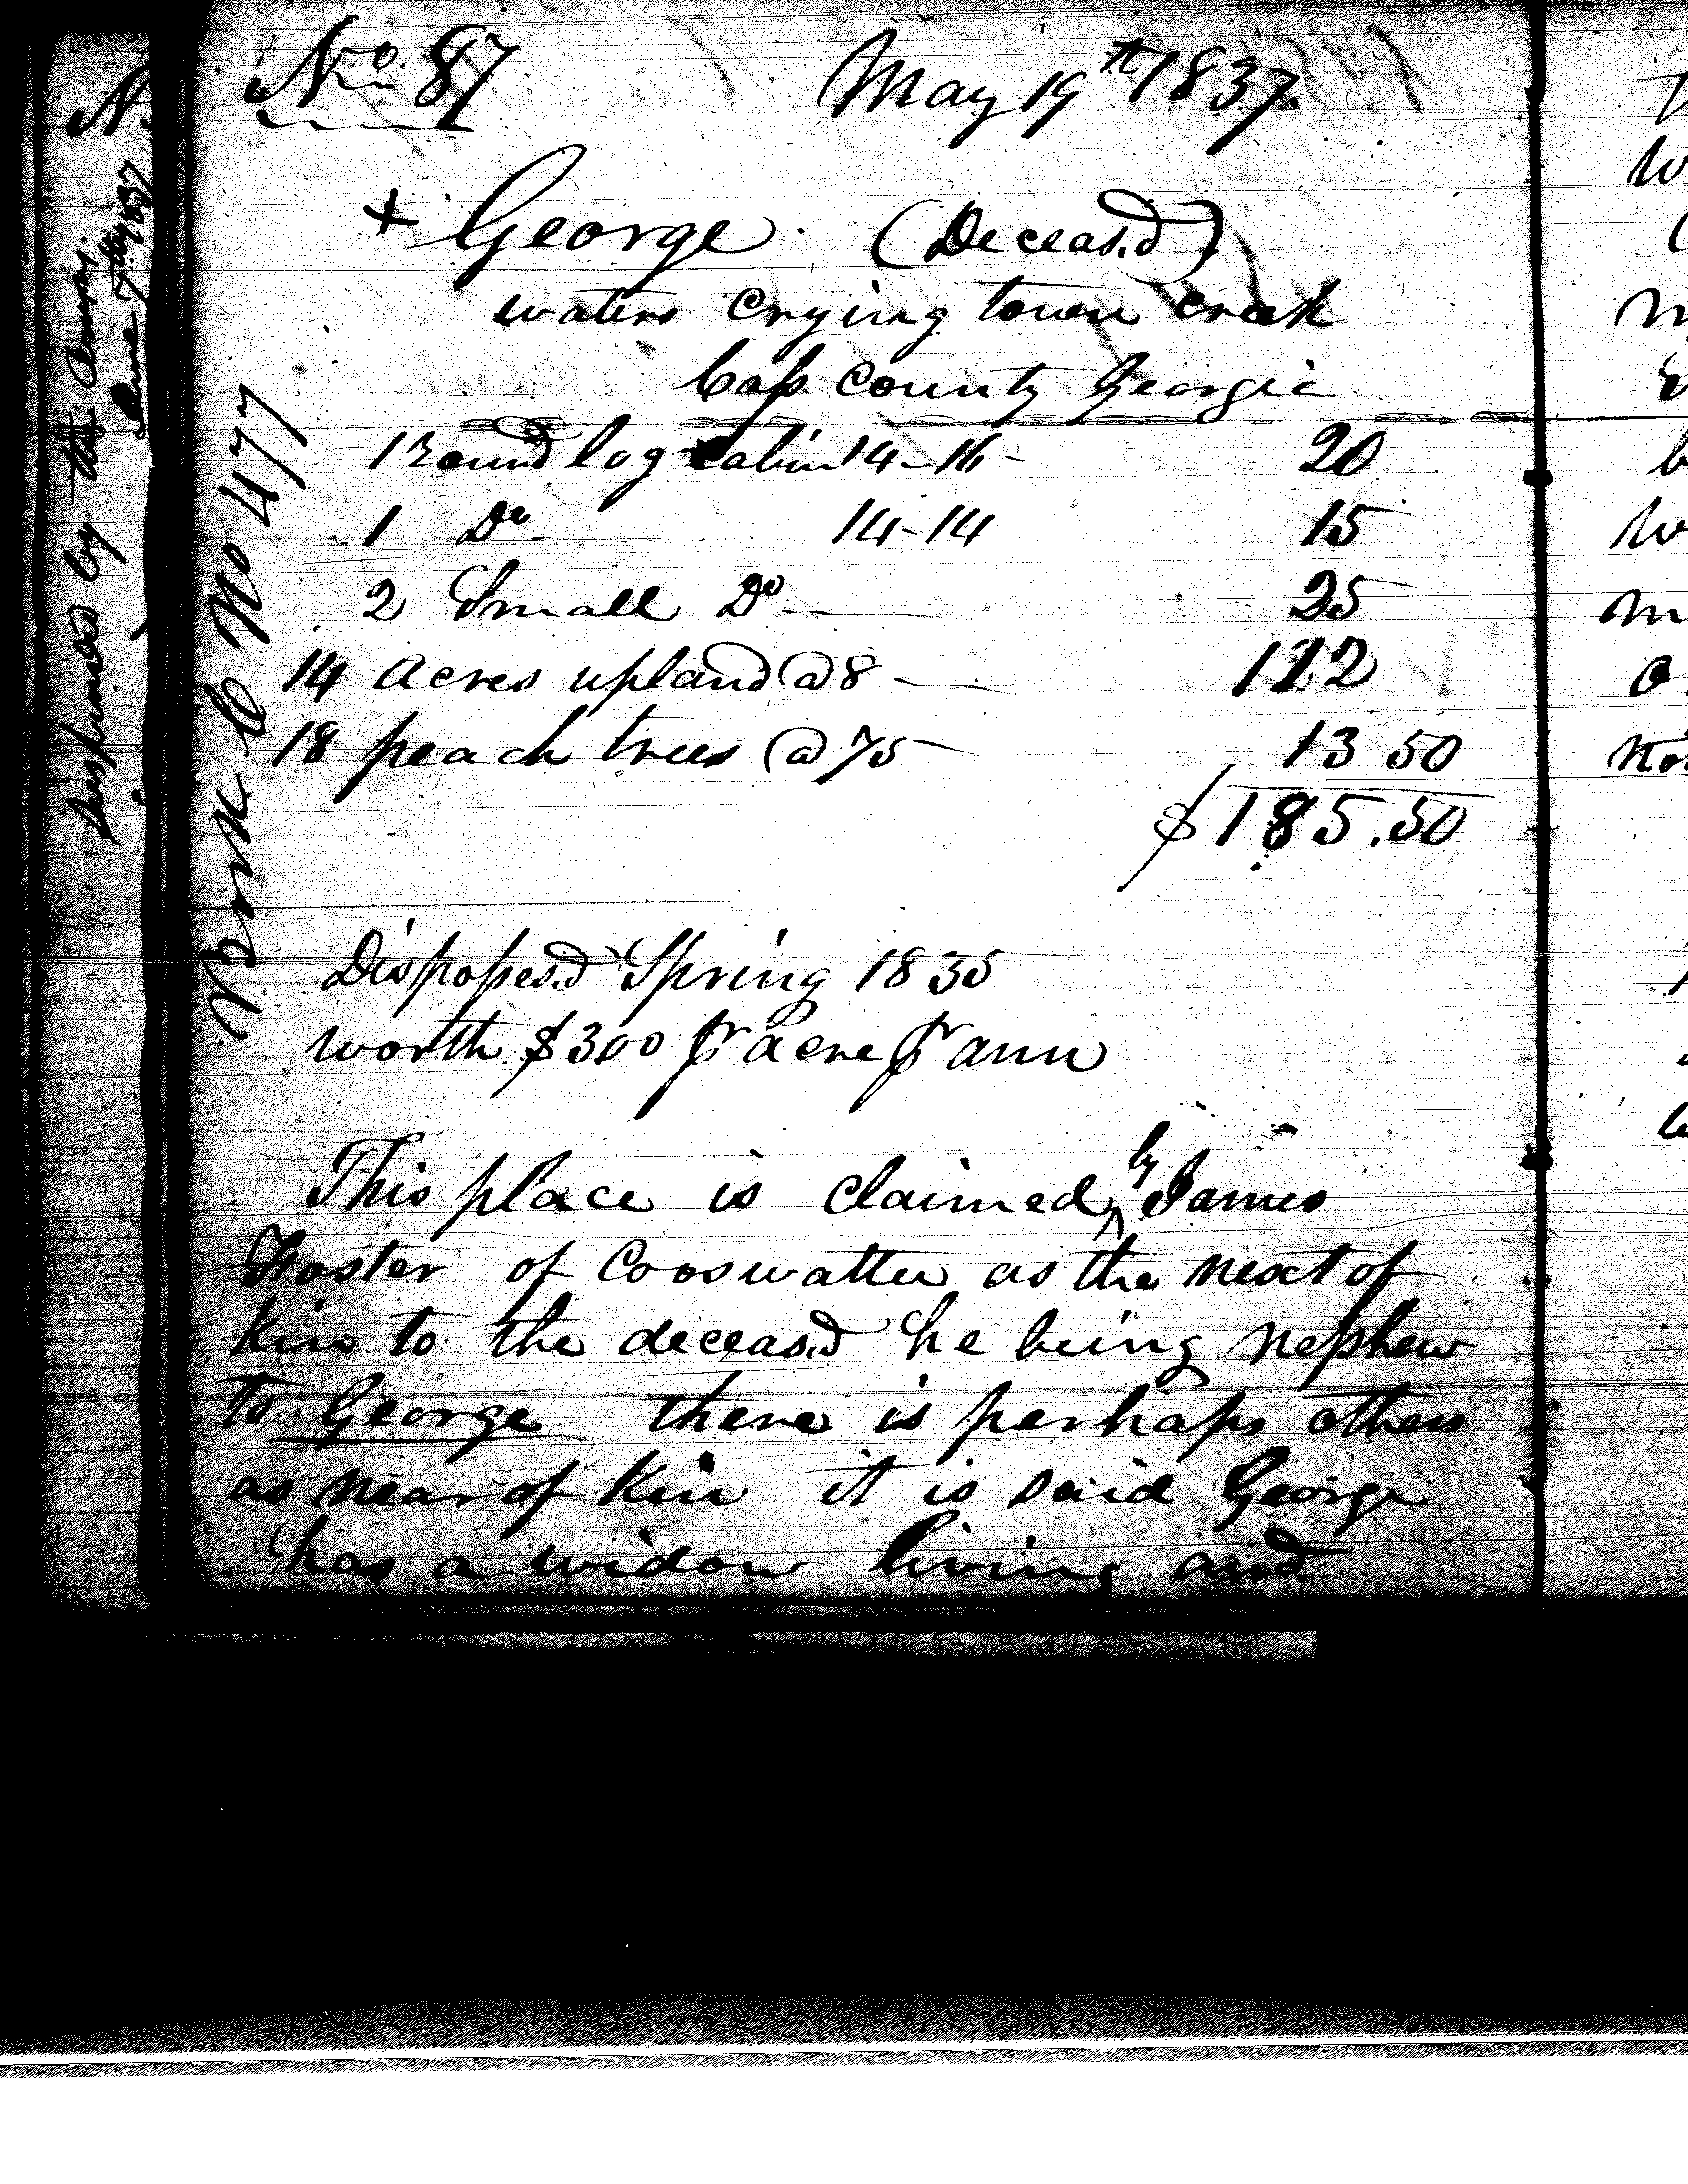 No. 87 May 19th 1837.
+ George (Deceas.d)
waters Crying town creek
Cass County Georgia
1 Round log cabin 14-16 - 20
1 Do 14-14 15
2 Small Do - 25
14 acres upland @ 8 - 112
18 peach trees @ 75 13 50
$185.50
Dispossesd Spring 1835
worth $300 pr acre pr ann
This place is claimed by James
Foster of Cooswattee as the next of
Kin to the deceasd he being nephew
to George there is perhaps others
as near of Kin it is said George
has a widow living and
Book C No 477
by the